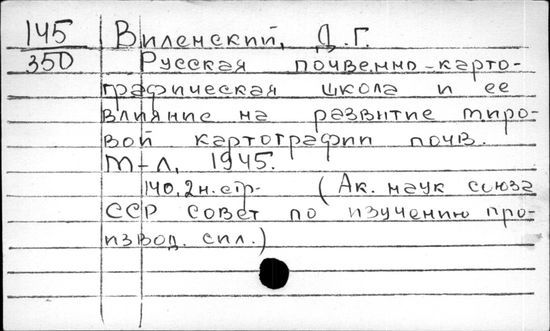 145 Виленский, Д.Г.
350 Русская почвенно-карто-
графическая школа и ее
влияние на развитие миро-
вой картографии почв.
М-Л, 1945.
140,2н.стр. (Ак. наук союза
ССР совет по изучению про-
извод. сил.)